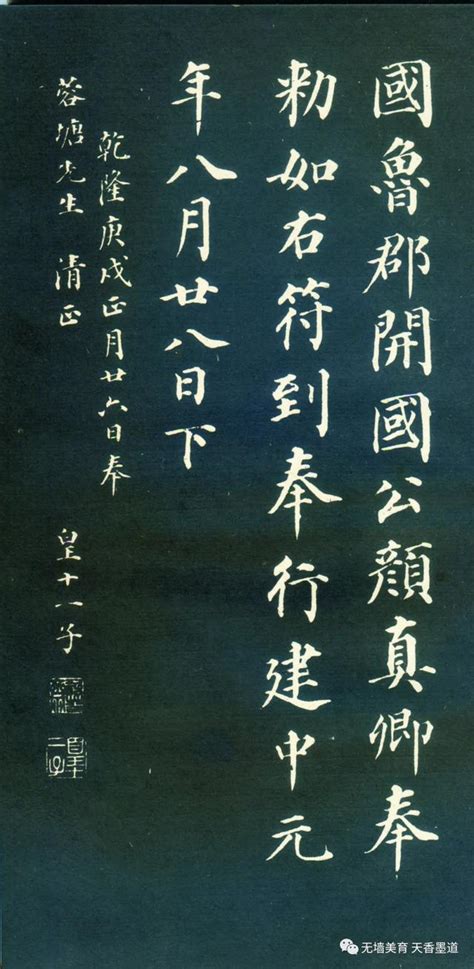 國魯郡開國公顏真卿奉
勑如右符到奉行建中元
年八月廿八日下
乾隆庚戌正月廿六日奉
蓉塘先生 清正
皇十一子
无墙美育 天香墨道